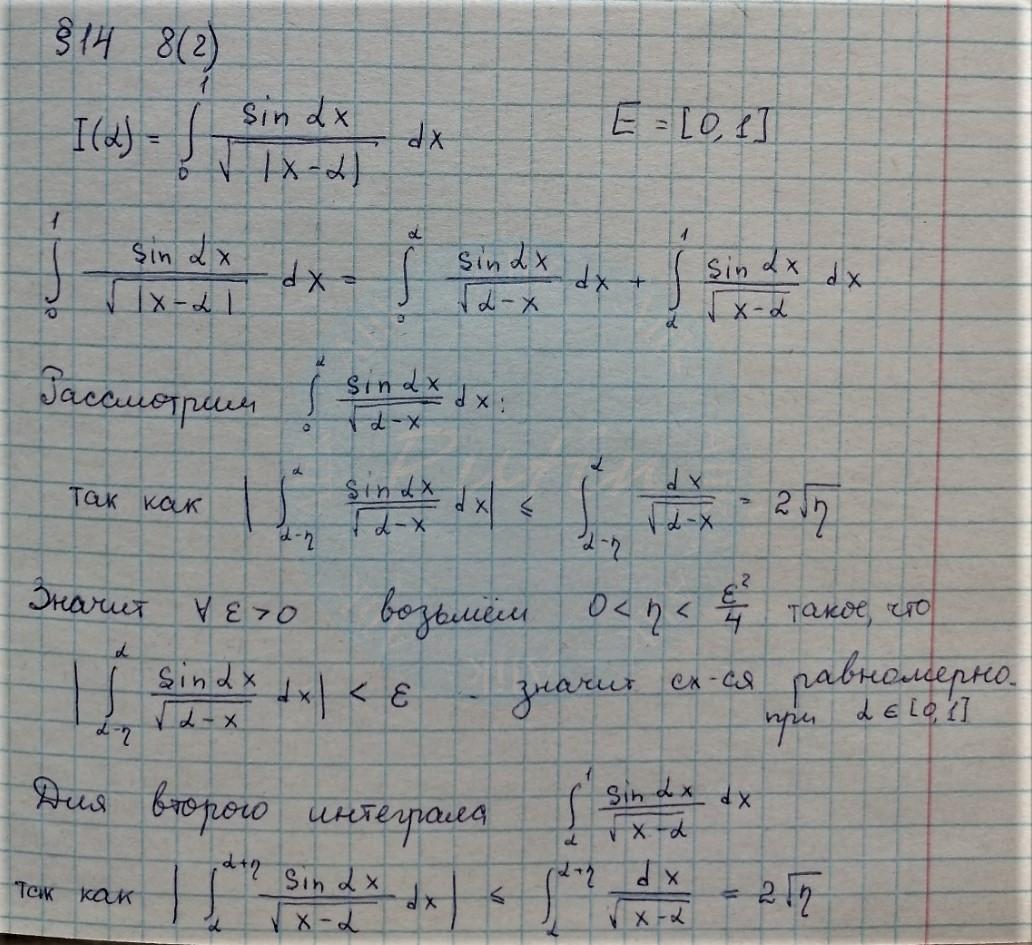 §14 8(2)
I(α) = ∫₀¹ sin αx / √|x-α| dx E = [0,1]
∫₀¹ sin αx / √|x-α| dx = ∫₀^α sin αx / √(α-x) dx + ∫_α^1 sin αx / √(x-α) dx
Рассмотрим ∫₀^α sin αx / √(α-x) dx:
так как |∫_{α-η}^α sin αx / √(α-x) dx| ≤ ∫_{α-η}^α dx / √(α-x) = 2√η
Значит ∀ ε>0 возьмём 0 < η < ε²/4 такое, что
|∫_{α-η}^α sin αx / √(α-x) dx| < ε - значит сх-ся равномерно.
при α ∈ [0,1]
Для второго интеграла ∫_α^1 sin αx / √(x-α) dx
так как |∫_α^{α+η} sin αx / √(x-α) dx| ≤ ∫_α^{α+η} dx / √(x-α) = 2√η